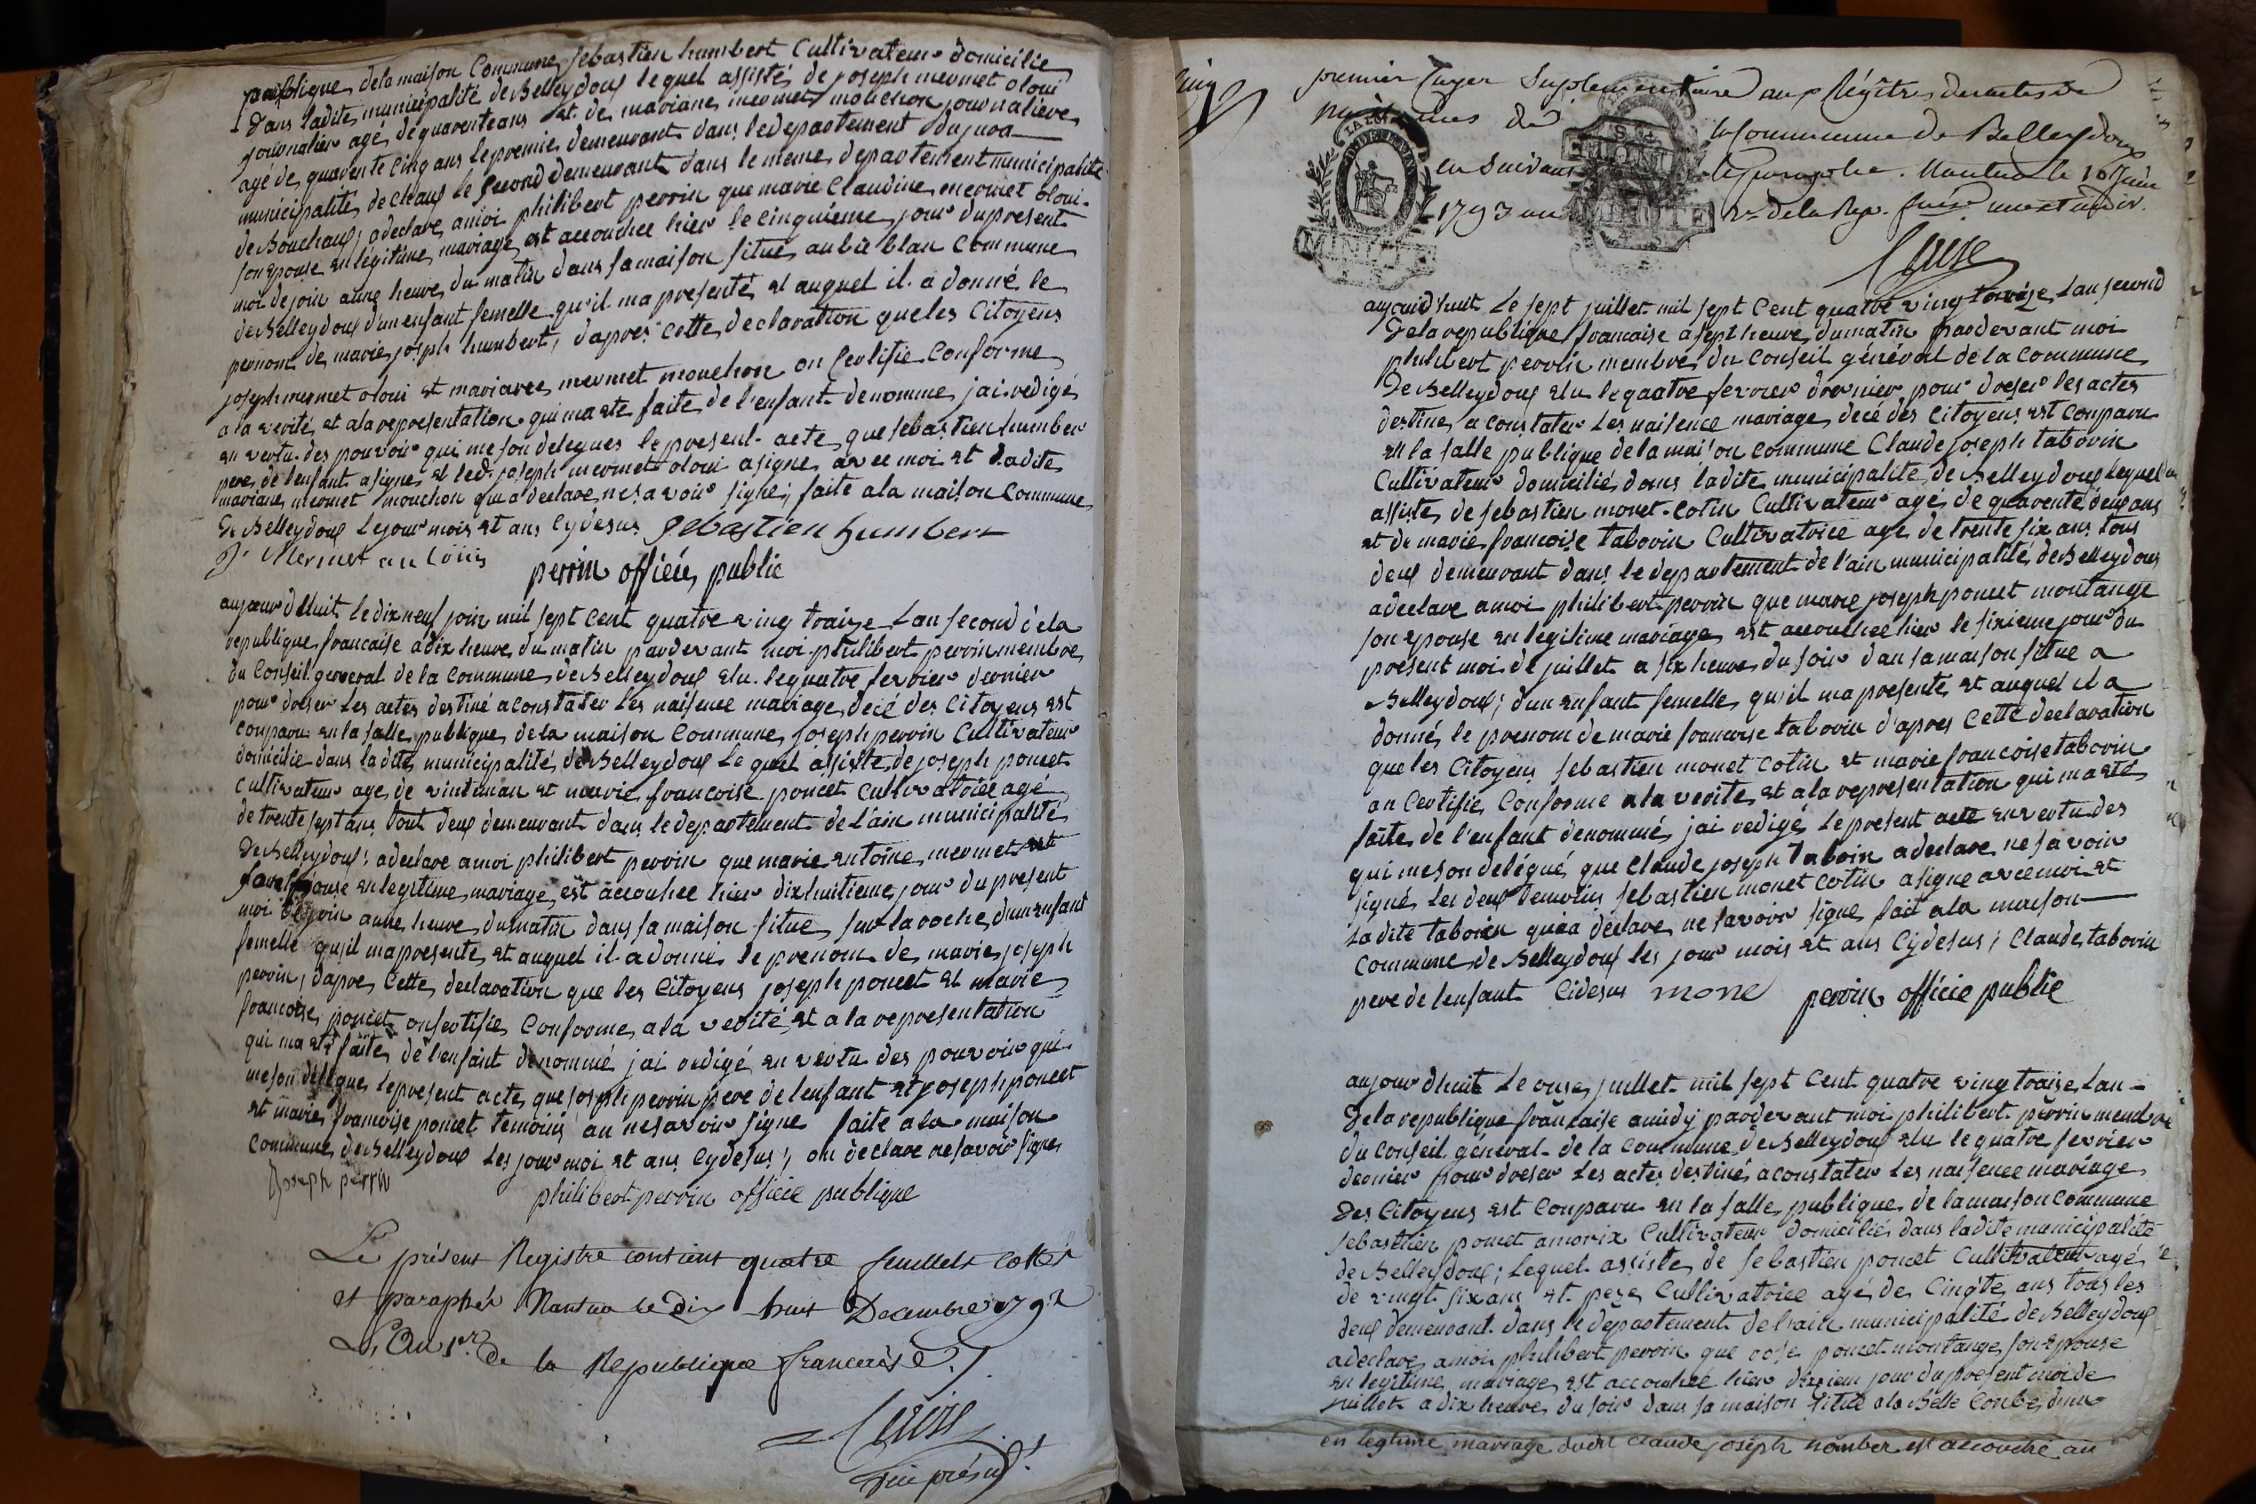 publique de la maison Commune Sebastien humbert Cultivateur domicilie
dans ladite municipalité de Belleydoux lequel assisté de joseph mermet oloui
journalier agé de quarente ans et de mariane mermet mouchon journaliere
agé de quarente cinq ans le premier demeurant dans le departement du jura
municipalité de Chaux le second demeurant dans le meme departement municipalité
de Bouchoux; a declare amoi philibert perrin que marie Claudine mermet oloui
son epouse en légitime mariage est accouchee hier le cinquieme jour du present
moi de join a une heure du matin dans sa maison situe au bié blan Commune
de Belleydoux d'un enfant femelle qu'il ma presenté et auquel il a donné le
pernom de marie joseph humbert, d'apres cette declaration que les Citoyens
joseph mermet oloui et mariane mermet mouchon on Certifie Conforme
a la verité et a la representation qui ma ete faite de l'enfant denomme jai redigé
en vertu des pouvoir qui me son delegues le present acte que sebastien humber
pere de l'enfant a signe et led. joseph mermet oloui a signe avec moi et ladite
mariane mermet mouchon qui a declare ne savoir signe; faite a la maison Commune
de Belleydoux le jour mois et ans cydesus Sebastien humbert
J. Mermet au loüis
perrin officier public
aujourdhuit le dix neuf join mil sept cent quatre ving traize Lan second dela
republique francaise a dix heure du matin pardevant moi philibert perrin membre
du Conseil general de la Commune de Belleydoux elu le quatre fevrier dernier
pour dreser les actes destiné a constater les naisence mariage decé des Citoyens est
Conparu en la salle publique de la maison Commune joseph perrin Cultivateur
domicilie dans ladite municipalité de Belleydoux Le quel assiste de joseph poncet
cultivateur age de vint un an et marie francoise poncet cultivatrice agé
de trente sept ans tout deux demeurant dans le departement de l'ain municipalité
de Belleydoux; a declare amoi philibert perrin que marie antoine mermet
epouse en legitime mariage est accouhee hier dix huitieme jour du present
moi de join a une heure du matin dans sa maison situe sur la roche d'un enfant
femelle qu'il ma presente et auquel il a donné le prenom de marie joseph
perrin; d'apres cette declaration que les Citoyens joseph poncet et marie
francoise poncet on sertifie Conforme a la verité et a la representation
qui ma ete faite de l'enfant denommé jai redigé en vertu des pouvoir qui
me son delegue le present acte que joseph perrin pere de lenfant et joseph poncet
et marie francoise poncet temoins an ne savoir signe faite a la maison
Commune de Belleydoux les jour moi et ans cydesus; on declare ne savoir signe
Joseph perrin
philibert perrin officie publique
Le présent Registre contient quatre feuillets cottés
et paraphés Nantua le dix huit Decembre 1792
L'An 1er de la Republique francaise.
vice présidt.
premier cayer Suplementaire aux Régitres des actes de
de la Commune de Belleydoux
en suivant le paraphe. Nantua le 16 juin
1793 an 2e de la Rep. fse.
LA LOI
MINUTE
aujourdhuit Le sept juillet mil sept Cent quatre ving traize Lan second
de la republique francaise a sept heure du matin pardevant moi
philibert perrin membre du Conseil général de la Commune
de Belleydoux elu le quatre fevrier dernier pour dreser les actes
destine a constater Les naisence mariage decé des Citoyens est Conparu
en la salle publique de la maison Commune Claude joseph taborin
Cultivateur domicilié dans ladite municipalité de Belleydoux lequel
assisté de sebastien monet-cotin Cultivateur agé de quarente deux ans
et de marie francoise taborin Cultivatrice agé de trente six ans tous
deux demeurant dans le departement de l'ain municipalité de Belleydoux
a declare amoi philibert perrin que marie joseph poncet montange
son epouse en legitime mariage est accouchee hier le sixieme jour du
present moi de juillet a six heure du soir dan sa maison situe a
Belleydoux; d'un enfant femelle qu'il ma presente et auquel il a
donné le prenom de marie francoise taborin d'apres cette declaration
que les Citoyens sebastien monet cotin et marie francoise taborin
an Certifie Conforme a la verite et a la representation qui ma eté
faite de l'enfant denommé jai redigé Le present acte en vertu des
qui me son delégué que Claude joseph taborin a declare ne savoir
signé Les deux temoins sebastien monet cotin a signe avec moi et
ladite taborin qui a declare ne savoir signe fait a la maison
Commune de Belleydoux les jour mois et ans Cydesus; Claude taborin
pere de lenfant Cidesus mone perrin officie public
aujourdhuit Le onse juillet mil sept Cent quatre ving traize Lan
de la republique francaise a midy pardevant moi philibert perrin membre
du Conseil general de la Commune de Belleydoux elu le quatre fevrier
dernier pour dreser Les actes destiné a constater Les naisence mariage
des Citoyens est Conparu en la salle publique de la maison Commune
Sebastien poncet amorix Cultivateur domicilié dans ladite municipalité
de Belleydoux; Lequel assiste de sebastien poncet Cultivateur agé
de vingt six ans et Cultivatrice agé de Cinqte ans tous les
deux demeurant dans le departement de l'ain municipalité de Belleydoux
a declare amoi philibert perrin que rose poncet montange son epouse
en legitime mariage est accouchee hier dixiem jour du present moi de
juillet a dix heure du soir dans sa maison situé a la Belle Conbe d'un
en legtime mariage dudit claude joseph humber est accouché au